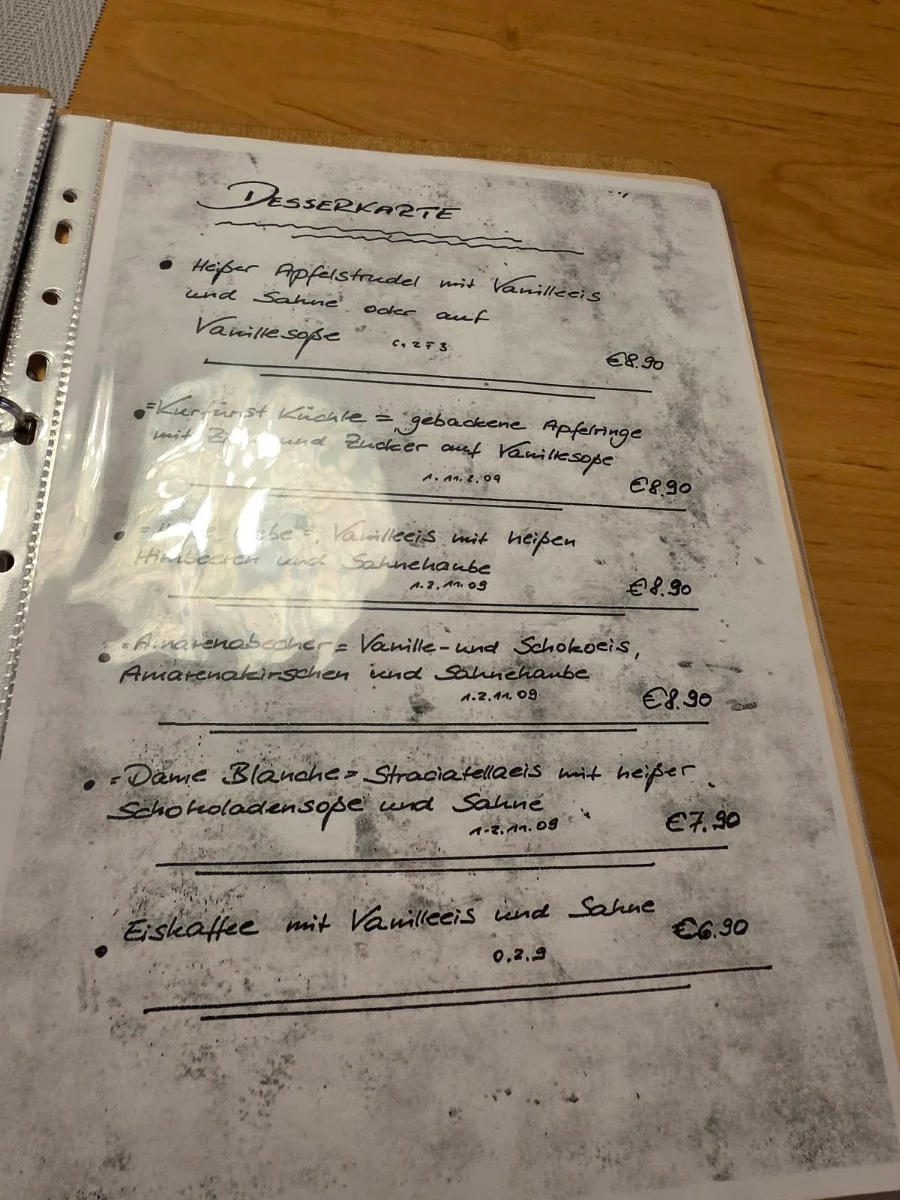 DESSERKARTE
• Heißer Apfelstrudel mit Vanilleeis
und Sahne oder auf
Vanillesoße
€8.90
• =Kurfürst Küchle = gebackene Apfelringe
mit Zimt und Zucker auf Vanillesoße
1.11.2.09 €8.90
• Vanilleeis mit heißen
Himbeeren und Sahnehaube
1.2.11.09 €8.90
• =Amarenabecher= Vanille-und Schokoeis,
Amarenakirschen und Sahnehaube
1.2.11.09 €8.90
• =Dame Blanche= Straciatellaeis mit heißer
Schokoladensoße und Sahne
1.2.11.09 €7.90
• Eiskaffee mit Vanilleeis und Sahne €6.90
0.2.9